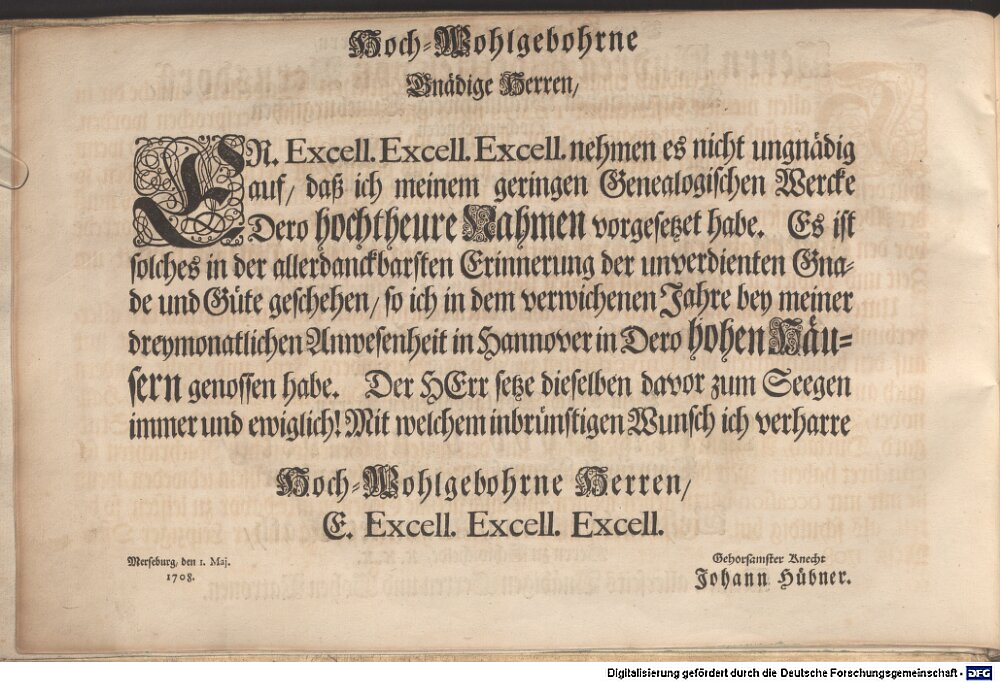 Hoch-Wohlgebohrne
Gnädige Herren/
ER. Excell. Excell. Excell. nehmen es nicht ungnädig
auf/ daß ich meinem geringen Genealogischen Wercke
Dero hochtheure Nahmen vorgesetzet habe. Es ist
solches in der allerdanckbarsten Erinnerung der unverdienten Gna-
de und Güte geschehen/ so ich in dem verwichenen Jahre bey meiner
dreymonatlichen Anwesenheit in Hannover in Dero hohen Häu-
sern genossen habe. Der HErr setze dieselben davor zum Seegen
immer und ewiglich! Mit welchem inbrünstigen Wunsch ich verharre
Hoch-Wohlgebohrne Herren/
E. Excell. Excell. Excell.
Merseburg, den 1. Maj.
1708.
Gehorsamster Knecht
Johann Hübner.
Digitalisierung gefördert durch die Deutsche Forschungsgemeinschaft - DFG